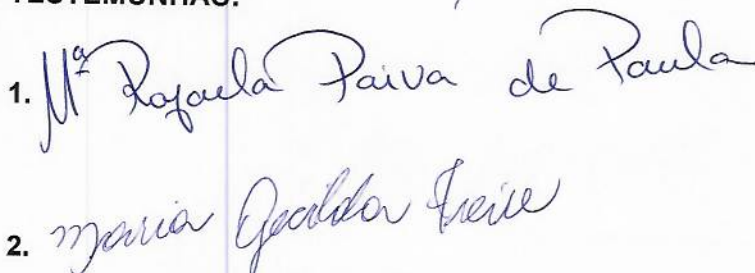 TESTEMUNHAS:
1. Mª Rafaela Paiva de Paula
2. Maria Freire